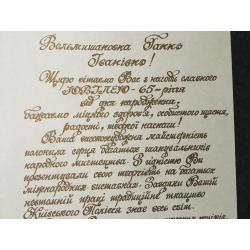 Вельмишановна Ганно
Іванівно!
Щиро вітаємо Вас з нагоди славного
ЮВІЛЕЮ - 65-річчя
від дня народження;
бажаємо міцного здоров'я, особистого щастя,
радості, творчої наснаги!
Ваша високохудожня майстерність
полонила серця багатьох шанувальників
народного мистецтва. З гідністю Ви
презентували свою творчість на багатьох
міжнародних виставках. Завдяки Вашій
невтомній праці традиційне ткацтво
Київського Полісся знає весь світ.